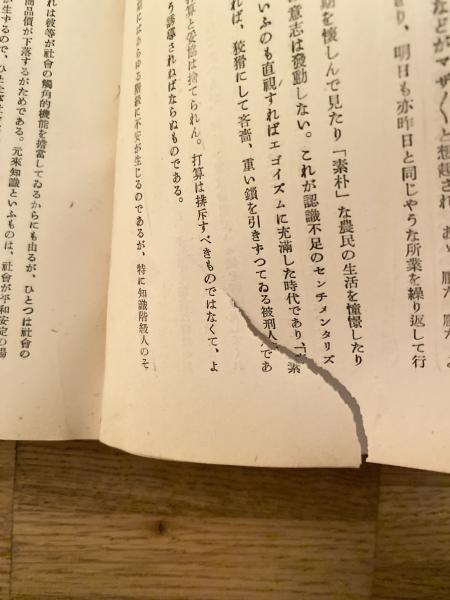 などがマザ〱と想起され、あゝ
り、明日も亦昨日と同じやうな所業を繰り返して行
を懐しんで見たり「素朴」な農民の生活を憧憬したり
意志は發動しない。これが認識不足のセンチメンタリズ
いふのも直視すればエゴイズムに充滿した時代であり、「素
れば、狡猾にして吝嗇、重い鎖を引きずつてゐる被刑人であ
算と妥協は捨てられん。打算は排斥すべきものではなくて、よ
う誘導されねばならぬものである。
にはあらゆる階級に不安が生じるのであるが、特に知識階級人のそ
れは彼等が社會の觸角的機能を擔當してゐるからにも由るが、ひとつは社會の
商品價が下落するがためである。元來知識といふものは、社會が平和安定の場
が生ずるので、ひ